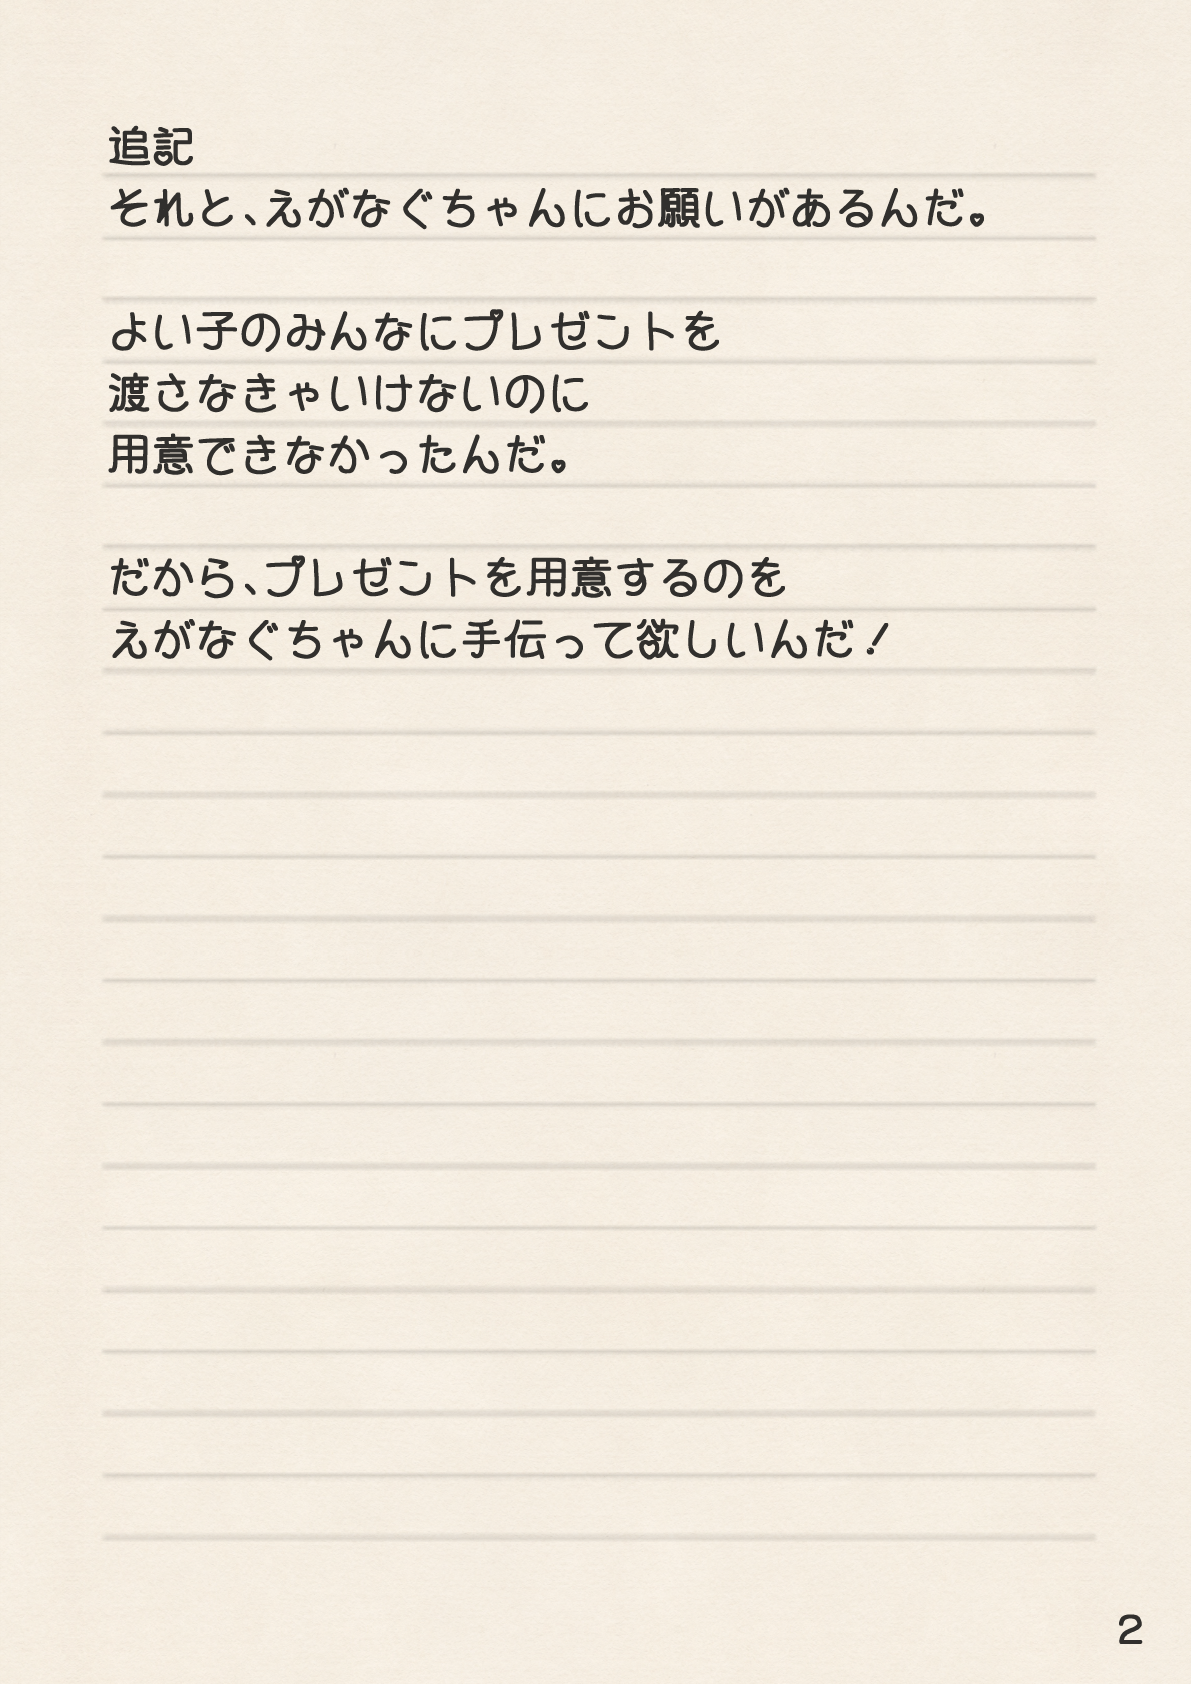 追記
それと、えがなぐちゃんにお願いがあるんだ。
よい子のみんなにプレゼントを
渡さなきゃいけないのに
用意できなかったんだ。
だから、プレゼントを用意するのを
えがなぐちゃんに手伝って欲しいんだ！
2